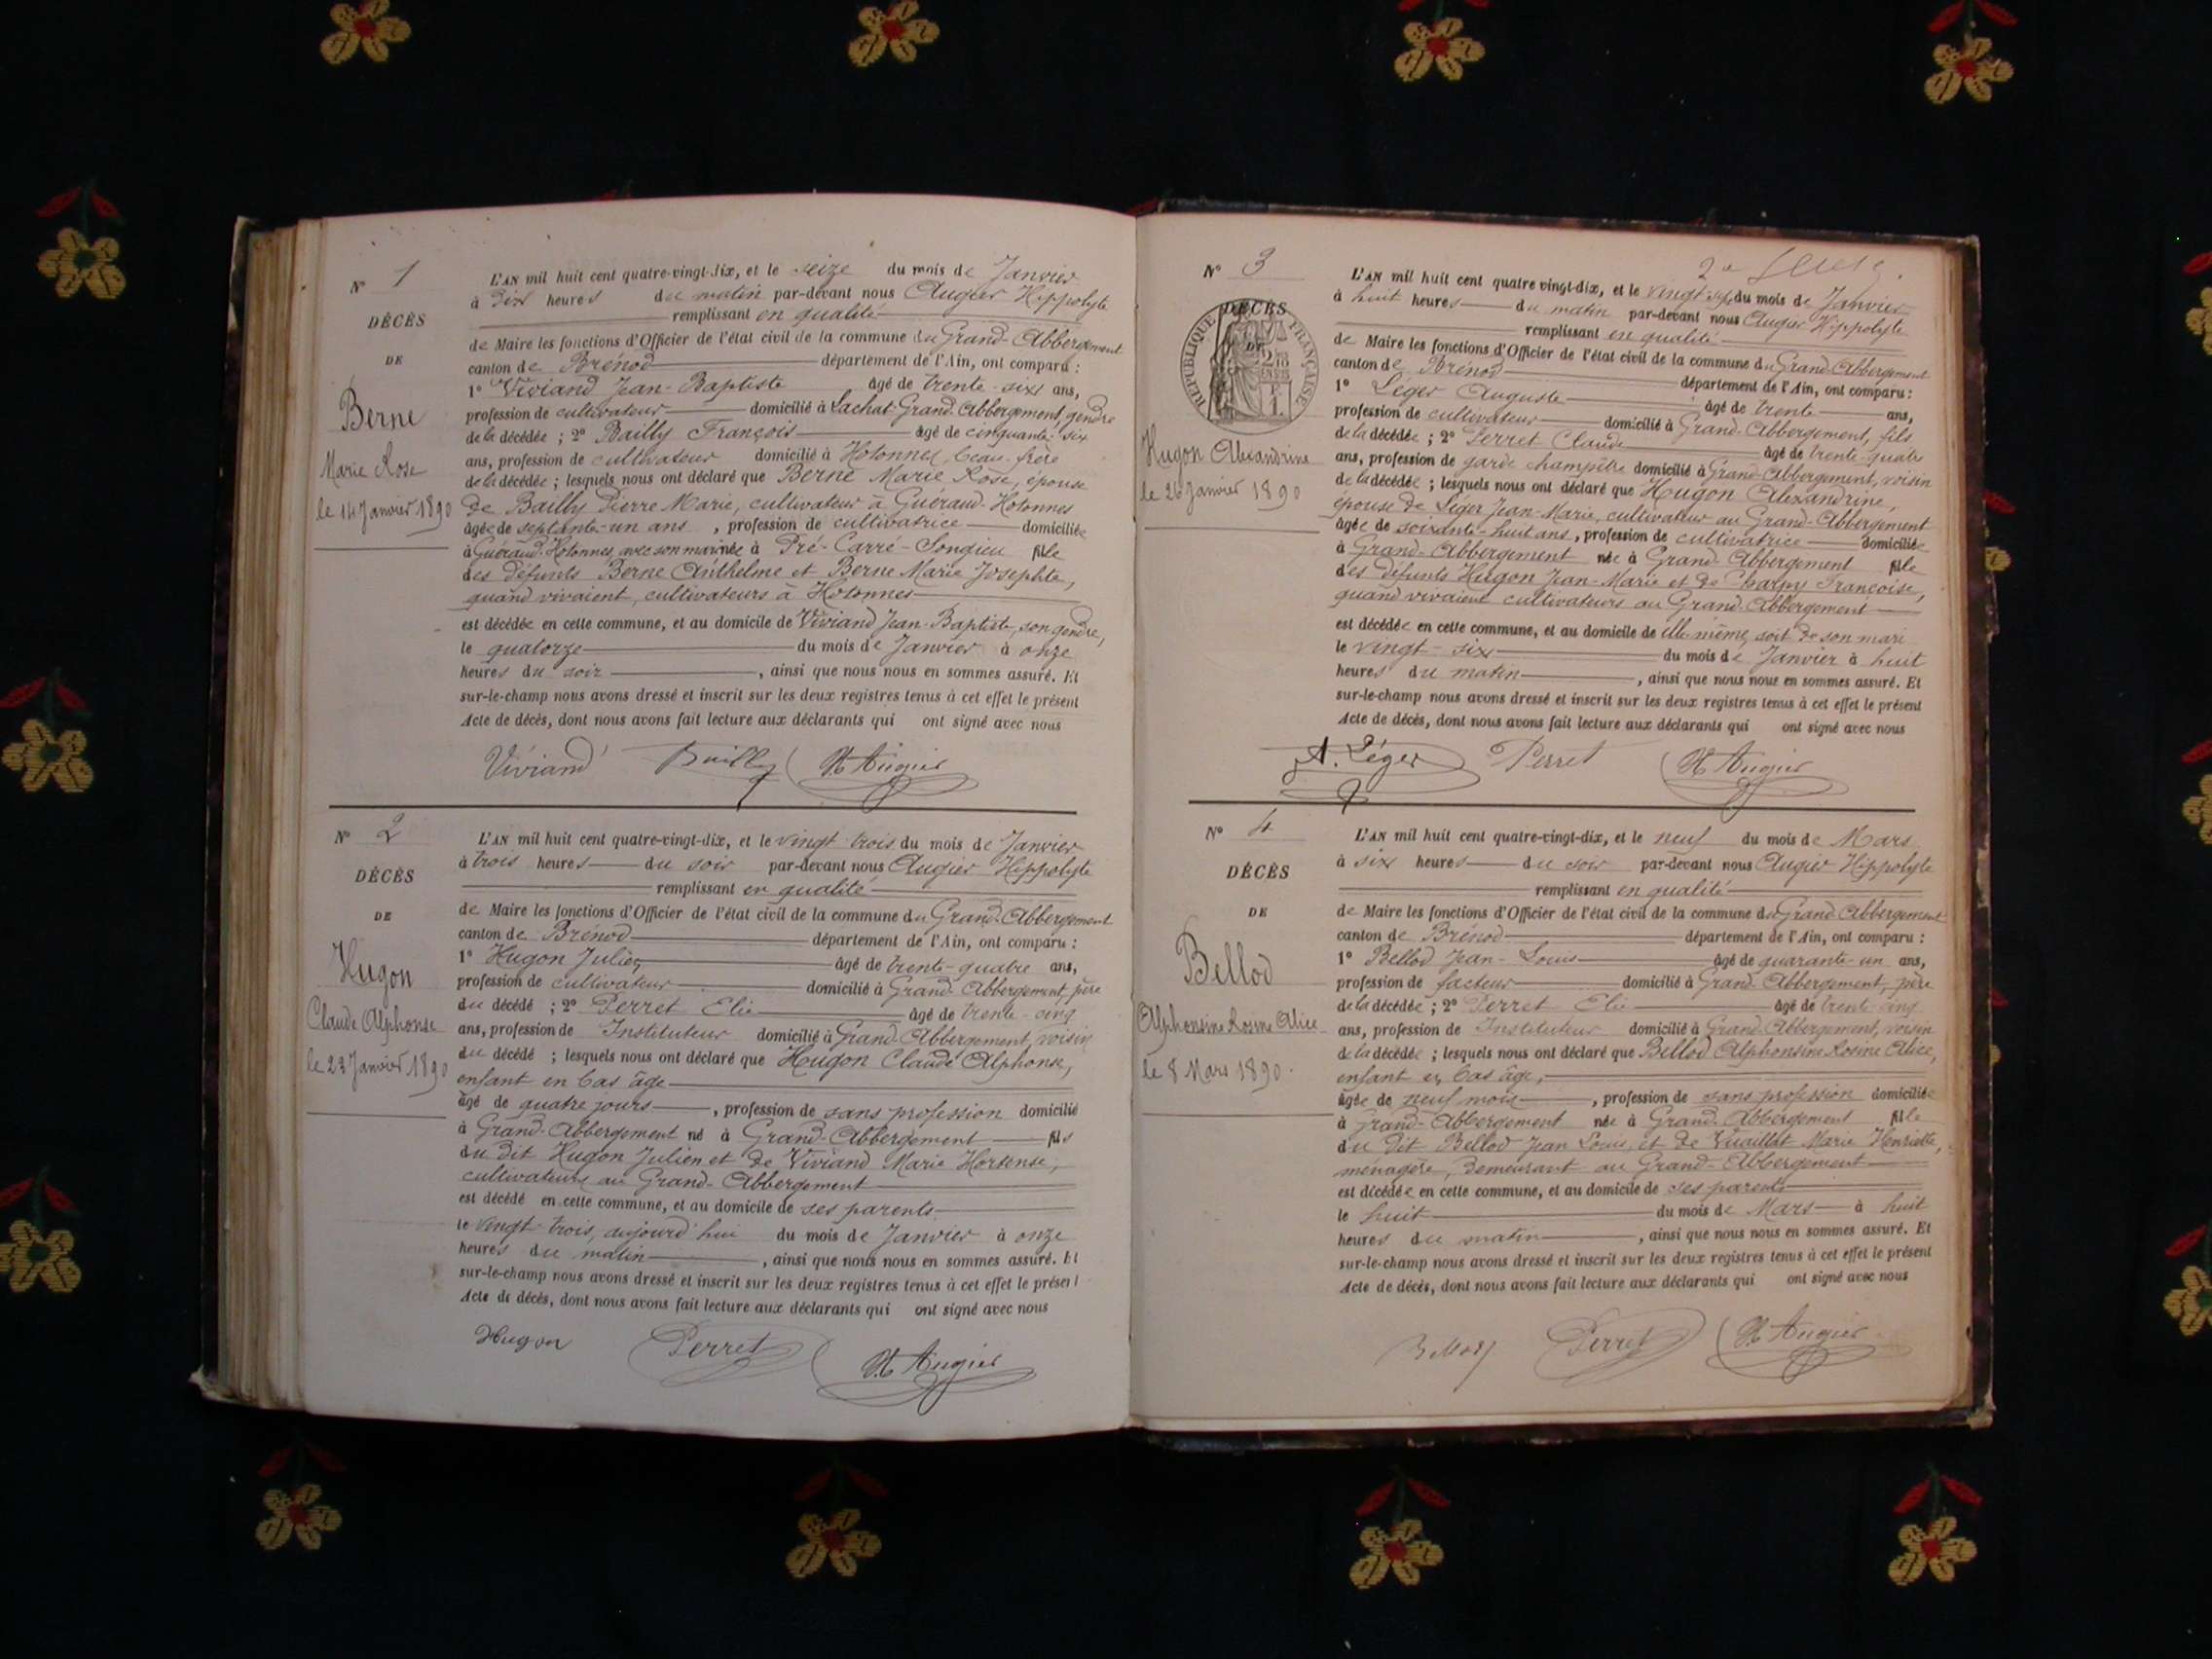 N° 1
DÉCÈS
DE
Berne
Marie Rose
le 14 Janvier 1890
L'AN mil huit cent quatre-vingt-dix, et le seize du mois de Janvier
à dix heures du matin par-devant nous Augier Hippolyte
remplissant en qualité
de Maire les fonctions d'Officier de l'état civil de la commune du Grand-Abbergement
canton de Brénod département de l'Ain, ont comparu :
1° Viviand Jean-Baptiste âgé de trente-six ans,
profession de cultivateur domicilié à Lachat-Grand-Abbergement, gendre
de la décédée ; 2° Bailly François âgé de cinquante-six
ans, profession de cultivateur domicilié à Hotonnes, beau-frère
de la décédée ; lesquels nous ont déclaré que Berne Marie Rose, épouse
de Bailly Pierre Marie, cultivateur à Guéraud-Hotonnes
âgée de septante-un ans , profession de cultivatrice domiciliée
à Guéraud-Hotonnes, avec son mari née à Pré-Carré-Songieu fille
des défunts Berne Anthelme et Berne Marie Josephte,
quand vivaient, cultivateurs à Hotonnes
est décédée en cette commune, et au domicile de Viviand Jean-Baptiste, son gendre,
le quatorze du mois de Janvier à onze
heures du soir , ainsi que nous nous en sommes assuré. Et
sur-le-champ nous avons dressé et inscrit sur les deux registres tenus à cet effet le présent
Acte de décès, dont nous avons fait lecture aux déclarants qui ont signé avec nous
Viviand Bailly H Augier
N° 2
DÉCÈS
DE
Hugon
Claude Alphonse
le 23 Janvier 1890
L'AN mil huit cent quatre-vingt-dix, et le vingt-trois du mois de Janvier
à trois heures du soir par-devant nous Augier Hippolyte
remplissant en qualité
de Maire les fonctions d'Officier de l'état civil de la commune du Grand-Abbergement
canton de Brénod département de l'Ain, ont comparu :
1° Hugon Julien âgé de trente-quatre ans,
profession de cultivateur domicilié à Grand-Abbergement, père
du décédé ; 2° Perret Elie âgé de trente-cinq
ans, profession de Instituteur domicilié à Grand-Abbergement, voisin
du décédé ; lesquels nous ont déclaré que Hugon Claude Alphonse,
enfant en bas âge
âgé de quatre jours , profession de sans profession domicilié
à Grand-Abbergement né à Grand-Abbergement fils
du dit Hugon Julien et de Viviand Marie Hortense,
cultivateurs au Grand-Abbergement
est décédé en cette commune, et au domicile de ses parents
le vingt-trois, aujourd'hui du mois de Janvier à onze
heures du matin , ainsi que nous nous en sommes assuré. Et
sur-le-champ nous avons dressé et inscrit sur les deux registres tenus à cet effet le présent
Acte de décès, dont nous avons fait lecture aux déclarants qui ont signé avec nous
Hugon Perret H Augier
N° 3
DÉCÈS
DE
RÉPUBLIQUE FRANÇAISE
Hugon Alexandrine
le 26 Janvier 1890
L'AN mil huit cent quatre-vingt-dix, et le vingt-sept du mois de Janvier
à huit heures du matin par-devant nous Augier Hippolyte
remplissant en qualité
de Maire les fonctions d'Officier de l'état civil de la commune du Grand-Abbergement
canton de Brénod département de l'Ain, ont comparu :
1° Léger Auguste âgé de trente ans,
profession de cultivateur domicilié à Grand-Abbergement, fils
de la décédée ; 2° Perret Claude âgé de trente-quatre
ans, profession de garde champêtre domicilié à Grand-Abbergement, voisin
de la décédée ; lesquels nous ont déclaré que Hugon Alexandrine,
épouse de Léger Jean-Marie, cultivateur au Grand-Abbergement
âgée de soixante-huit ans, profession de cultivatrice domiciliée
à Grand-Abbergement née à Grand-Abbergement fille
des défunts Hugon Jean-Marie et de Charny Françoise,
quand vivaient cultivateurs au Grand-Abbergement
est décédée en cette commune, et au domicile de elle-même, soit de son mari
le vingt-six du mois de Janvier à huit
heures du matin , ainsi que nous nous en sommes assuré. Et
sur-le-champ nous avons dressé et inscrit sur les deux registres tenus à cet effet le présent
Acte de décès, dont nous avons fait lecture aux déclarants qui ont signé avec nous
A. Léger Perret H Augier
N° 4
DÉCÈS
DE
Bellod
Alphonsine Rosine Alice
le 8 Mars 1890.
L'AN mil huit cent quatre-vingt-dix, et le neuf du mois de Mars
à six heures du soir par-devant nous Augier Hippolyte
remplissant en qualité
de Maire les fonctions d'Officier de l'état civil de la commune du Grand-Abbergement
canton de Brénod département de l'Ain, ont comparu :
1° Bellod Jean-Louis âgé de quarante-un ans,
profession de facteur domicilié à Grand-Abbergement, père
de la décédée ; 2° Perret Elie âgé de trente-cinq
ans, profession de Instituteur domicilié à Grand-Abbergement, voisin
de la décédée ; lesquels nous ont déclaré que Bellod Alphonsine Rosine Alice,
enfant en bas âge,
âgée de neuf mois , profession de sans profession domiciliée
à Grand-Abbergement née à Grand-Abbergement fille
du dit Bellod Jean Louis et de Vuaillat Marie Henriette,
ménagère, demeurant au Grand-Abbergement
est décédée en cette commune, et au domicile de ses parents
le huit du mois de Mars à huit
heures du matin , ainsi que nous nous en sommes assuré. Et
sur-le-champ nous avons dressé et inscrit sur les deux registres tenus à cet effet le présent
Acte de décès, dont nous avons fait lecture aux déclarants qui ont signé avec nous
Bellod Perret H Augier